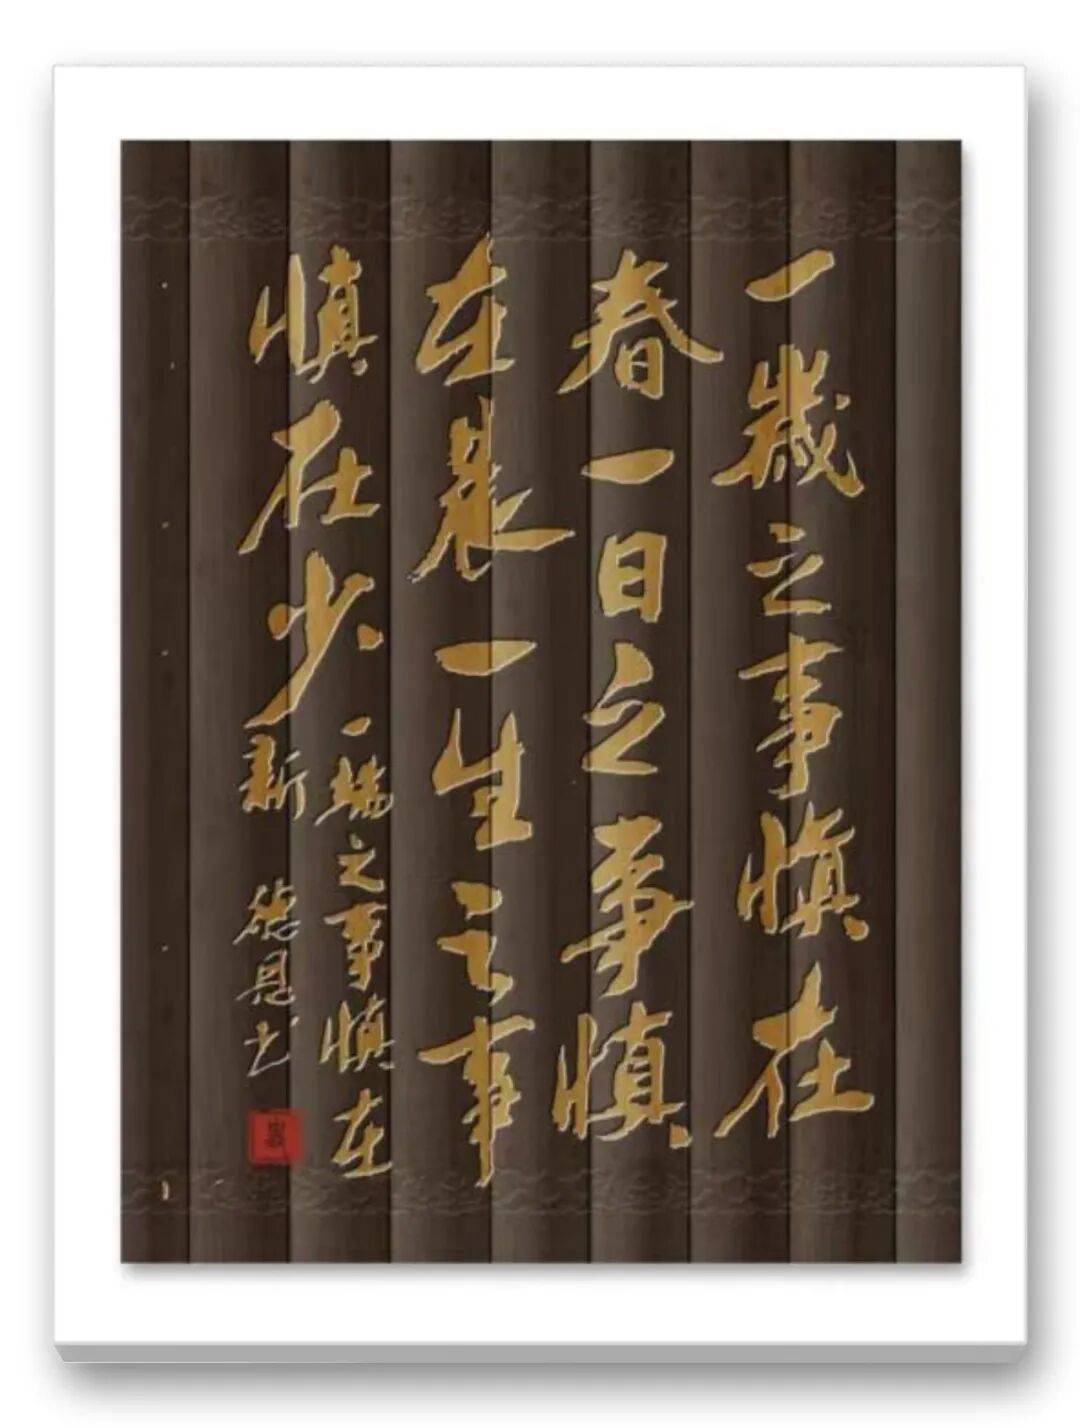 一歲之事慎在
春一日之事慎
在晨一生之事
慎在少
一端之事慎在
新 德恩书